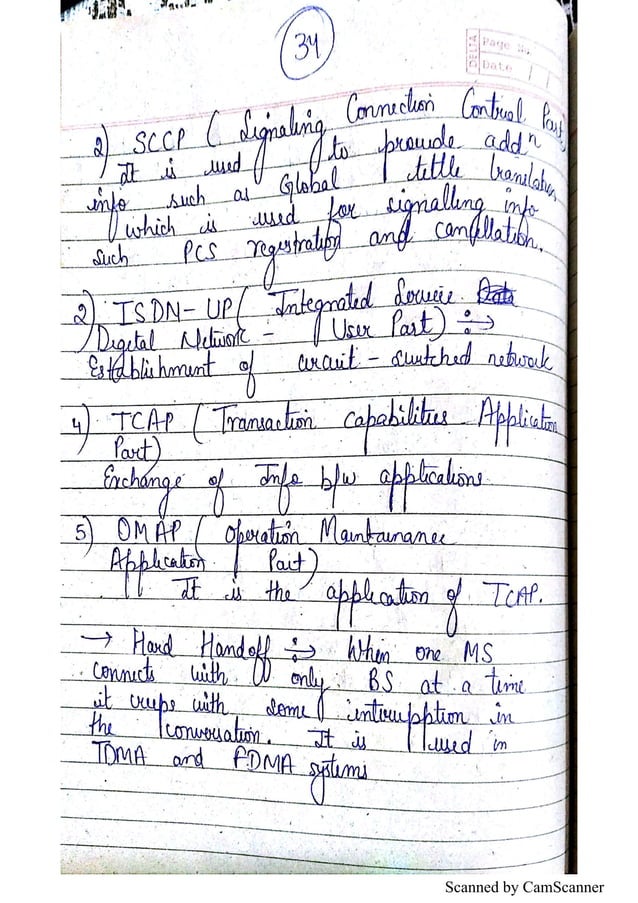 34
DELTA
Page No.
Date
2) SCCP ( Signaling Connection Control Part)
It is used to provide addn
info such as Global tittle translation
which is used for signalling info
such PCS registration and canfllation.
2) ISDN-UP ( Integrated Service
Digetal Network - User Part) ÷>
Establishment of circuit - switched network
4) TCAP ( Transaction capabilities Application
Part)
Exchange of Info b/w applications
5) OMAP ( Operation Maintainance
Application Part)
It is the application of TCAP.
→ Hard Handoff ÷> When one MS
connects with only BS at a time
it with some interrupption in
the conversation. It is used in
TDMA and FDMA systems
Scanned by CamScanner